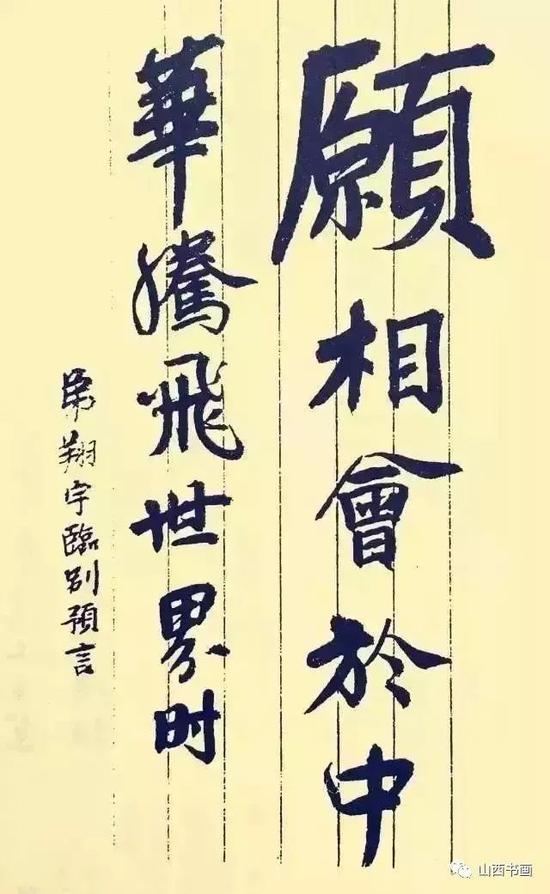 願相會於中
華騰飛世界时
弟翔宇臨别預言
山西书画